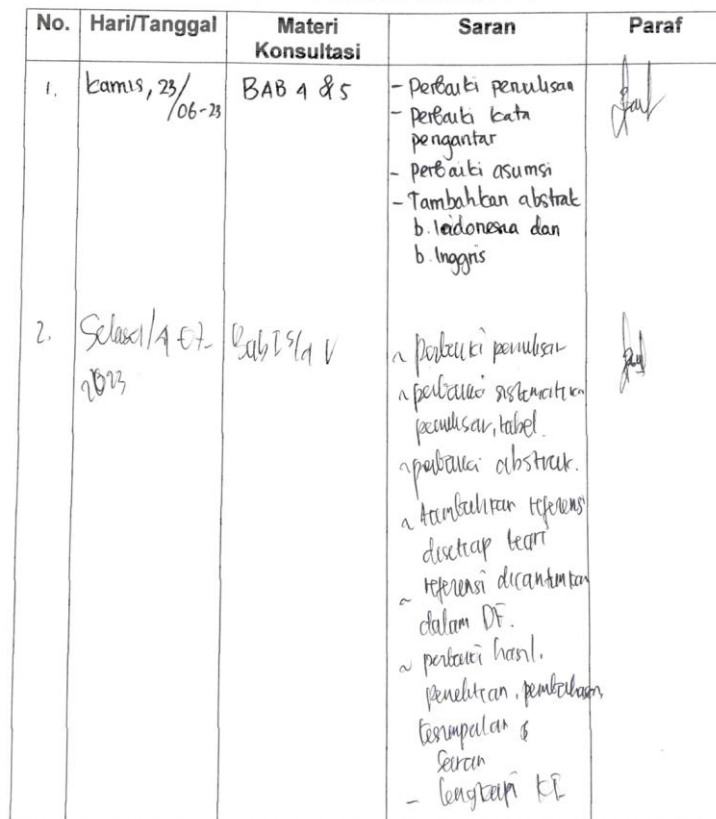 No. Hari/Tanggal Materi Konsultasi Saran Paraf
1. Kamis, 23/06-23 BAB 4 & 5
- Perbaiki penulisan
- Perbaiki kata
pengantar
- perbaiki asumsi
- Tambahkan abstrak
b. Indonesia dan
b. Inggris
2. Selasa/4-07-
2023
Bab I s/d V
~ perbaiki penulisan
~ perbaiki sistematika
penulisan, tabel.
~ perbaiki abstrak.
~ tambahkan referensi
disetiap teori
~ referensi dicantumkan
dalam DF.
~ perbaiki hasil.
penelitian, pembahasan,
kesimpulan &
Saran
- lengkapi KI